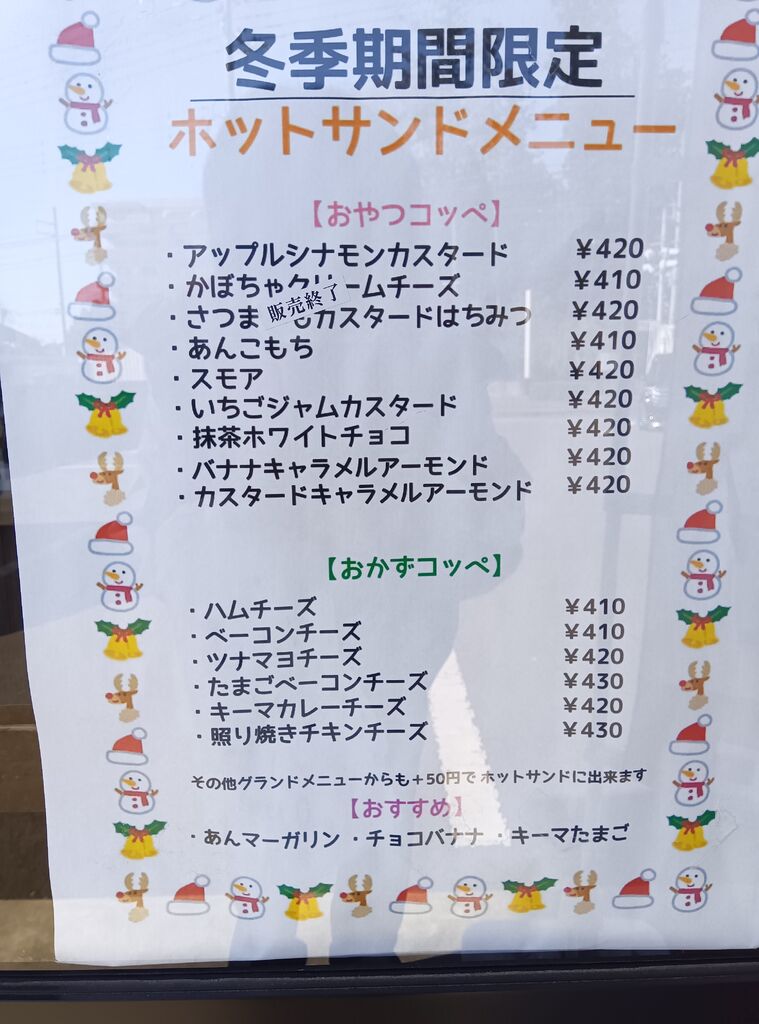 冬季期間限定
ホットサンドメニュー
【おやつコッペ】
・アップルシナモンカスタード ￥420
・かぼちゃクリームチーズ ￥410
販売終了
・さつま もカスタードはちみつ ￥420
・あんこもち ￥410
・スモア ￥420
・いちごジャムカスタード ￥420
・抹茶ホワイトチョコ ￥420
・バナナキャラメルアーモンド ￥420
・カスタードキャラメルアーモンド ￥420
【おかずコッペ】
・ハムチーズ ￥410
・ベーコンチーズ ￥410
・ツナマヨチーズ ￥420
・たまごベーコンチーズ ￥430
・キーマカレーチーズ ￥420
・照り焼きチキンチーズ ￥430
その他グランドメニューからも＋50円でホットサンドに出来ます
【おすすめ】
・あんマーガリン ・チョコバナナ ・キーマたまご